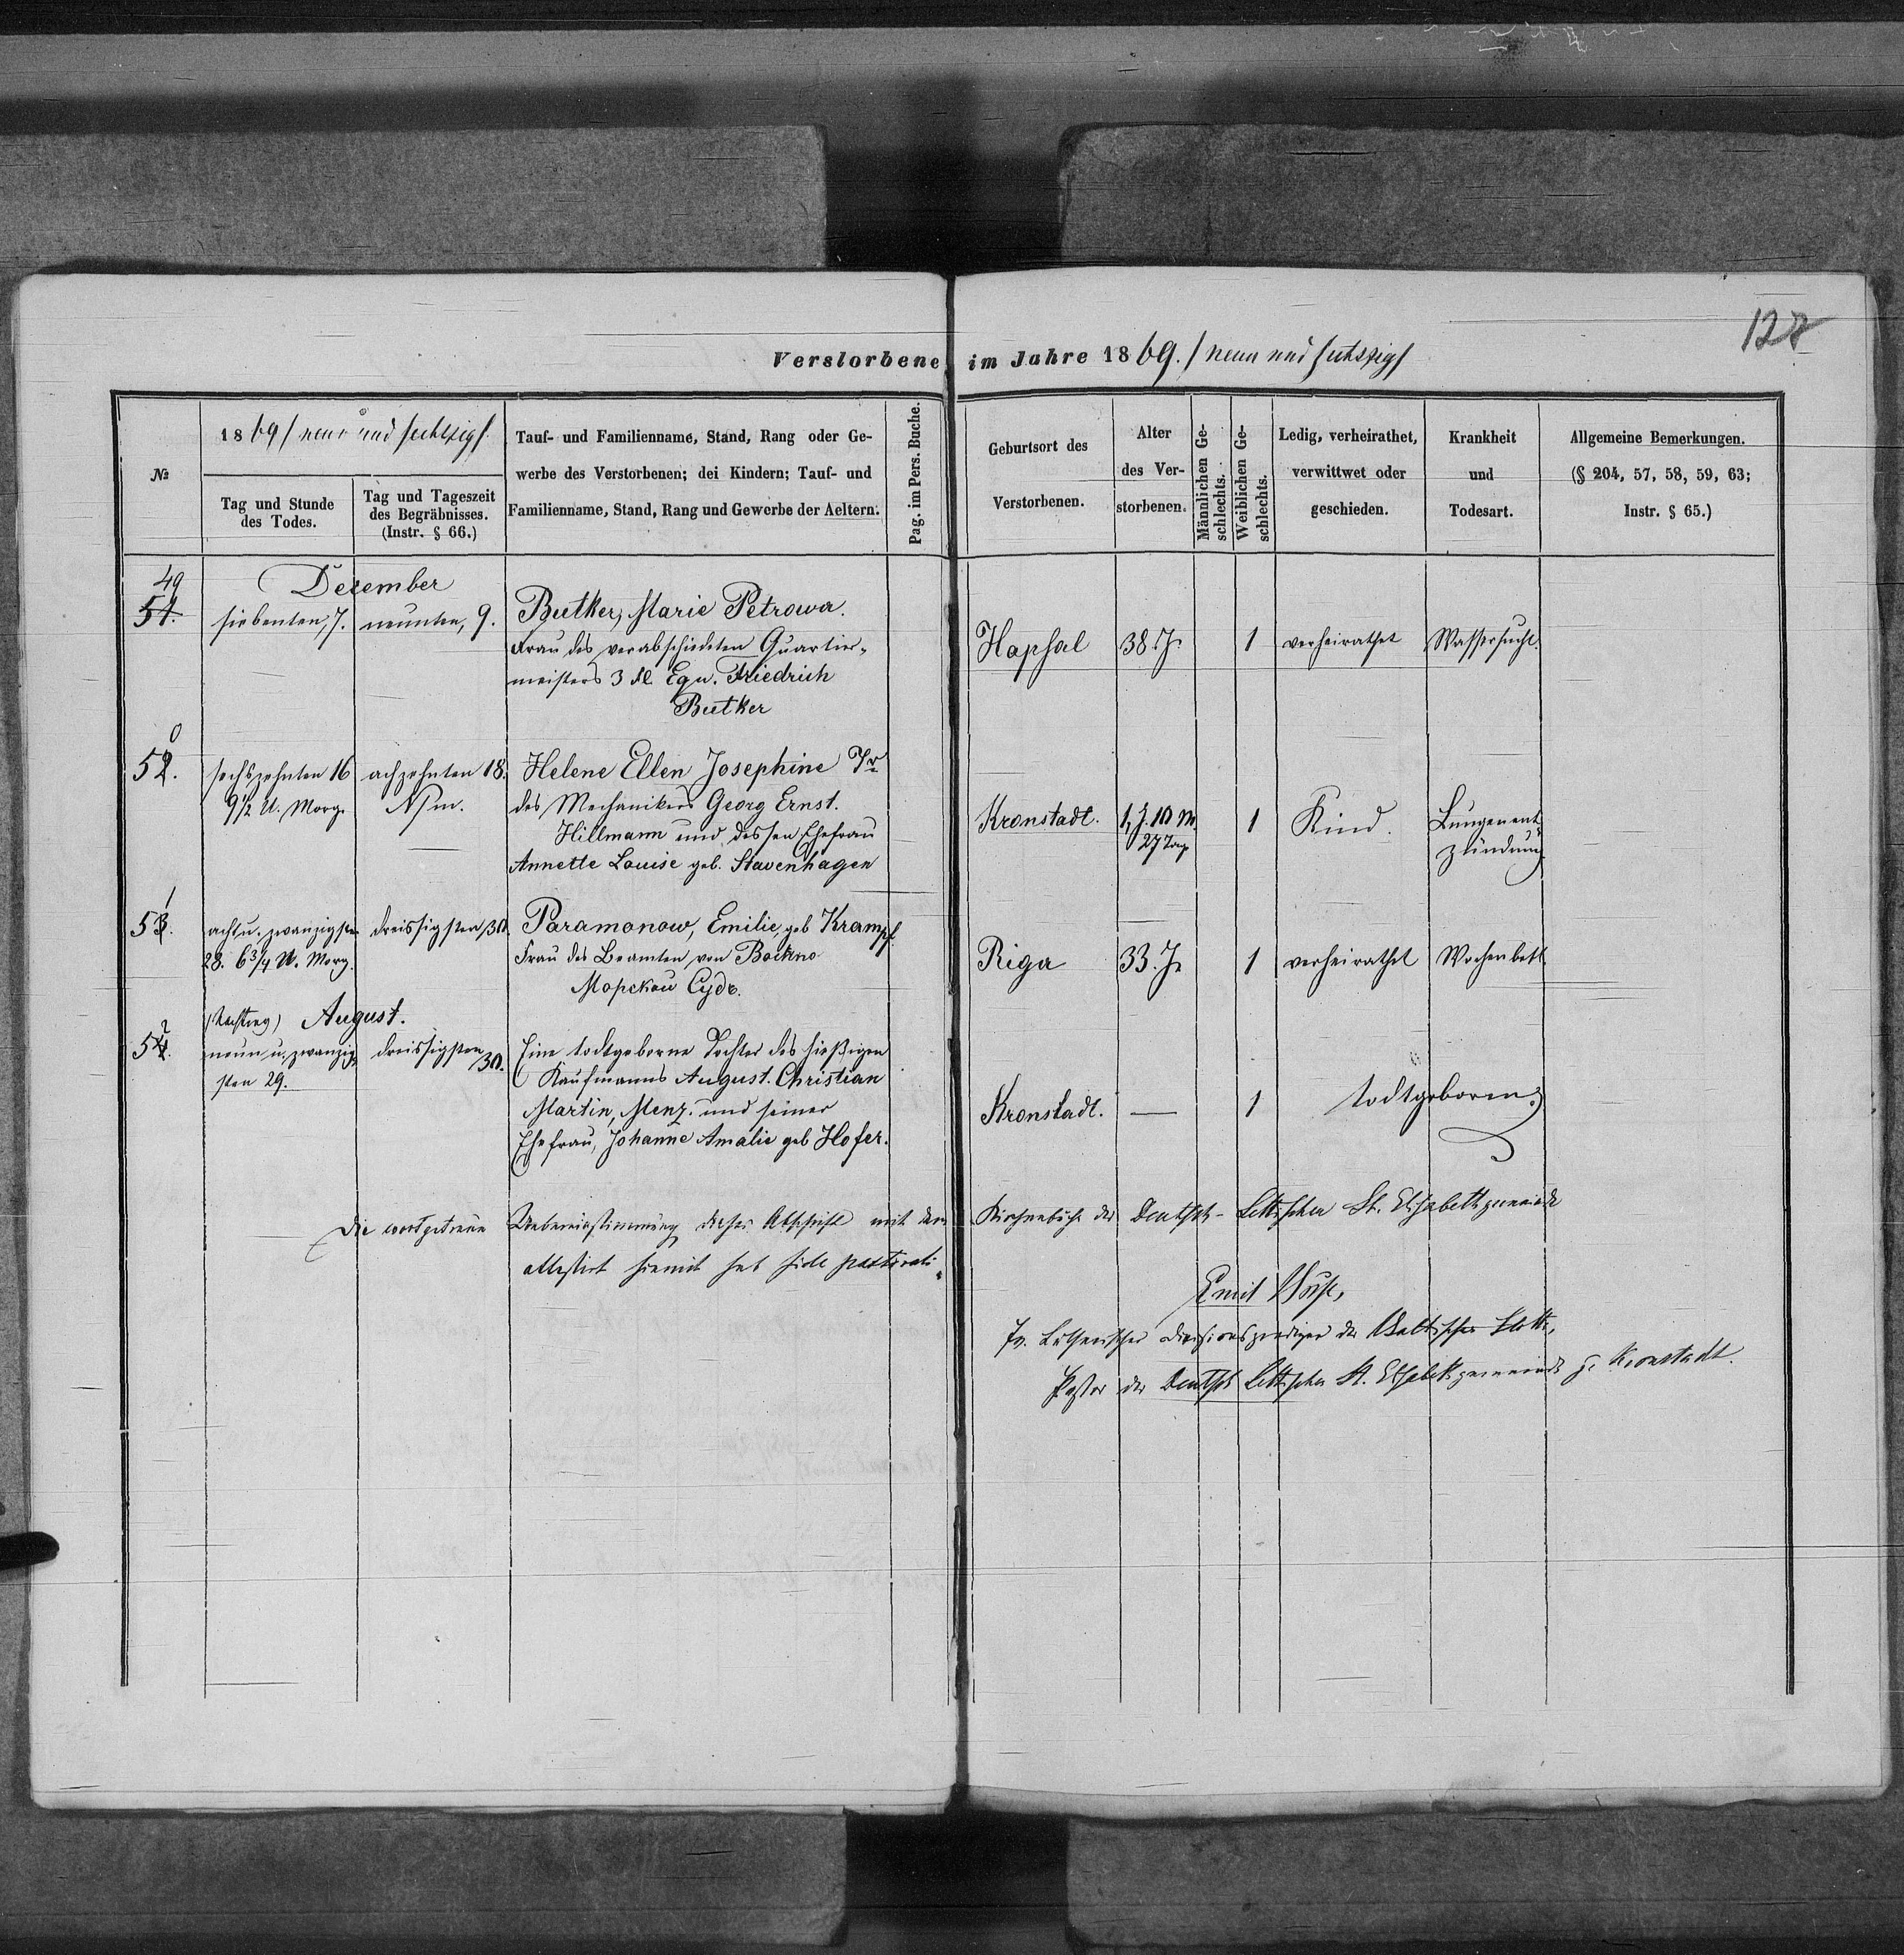 128
Verstorbene im Jahre 1869. / neun und sechszig /
№
1869 / neun und sechszig /.
Tag und Stunde
des Todes.
Tag und Tageszeit
des Begräbnisses.
(Instr. § 66.)
Tauf- und Familienname, Stand, Rang oder Ge-
werbe des Verstorbenen; dei Kindern; Tauf- und
Familienname, Stand, Rang und Gewerbe der Aeltern.
Pag. im Pers. Buche.
Geburtsort des
Verstorbenen.
Alter
des Ver-
storbenen.
Männlichen Ge-
schlechts.
Weiblichen Ge-
schlechts.
Ledig, verheirathet,
verwittwet oder
geschieden.
Krankheit
und
Todesart.
Allgemeine Bemerkungen.
(§ 204, 57, 58, 59, 63;
Instr. § 65.)
December
49
51. siebenten, 7. neunten, 9. Butker, Marie Petrowa.
Frau des verabschiedeten Quartier-
meisters 3 Fl. Equ. Friedrich
Butker
Hapsal 38 J. 1 verheirathet Wassersucht.
0
52. sechszehnten 16 achzehnten 18. Helene Ellen Josephine Tr
9½ U. Morg. Nm. des Mechanikers Georg Ernst.
Hillmann und dessen Ehefrau
Annette Louise geb. Stavenhagen
Kronstadt. 1 J. 10 M. 1 Kind. Lungenent
27 Tage zündung
1
53. acht u. zwanzigsten dreissigsten 30. Paramonow, Emilie, geb Krampf.
28. 6¾ U. Morg. Frau des Beamten von
Riga 33. J. 1 verheirathet Wochenbett
(Nachtrag) August.
2
54. neun u. zwanzig dreissigsten 30. Eine todtgeborne Tochter des hiesigen
sten 29. Kaufmanns August. Christian
Martin, Menz. und seiner
Ehefrau, Johanne Amalie geb Hofer.
Kronstadt. — 1 todtgeboren.
Die wortgetreue Uebereinstimmung dieser Abschrift mit dem Kirchenbuche der Deutsch-Lettischen St. Elisabethgemeinde
attestirt hiemit sub fide pastorali.
Emil
Ev. Lutherischer Divisionsprediger der Baltischen Flotte,
Pastor der Deutsch Lettischen St. Elisabethgemeinde z. Kronstadt.